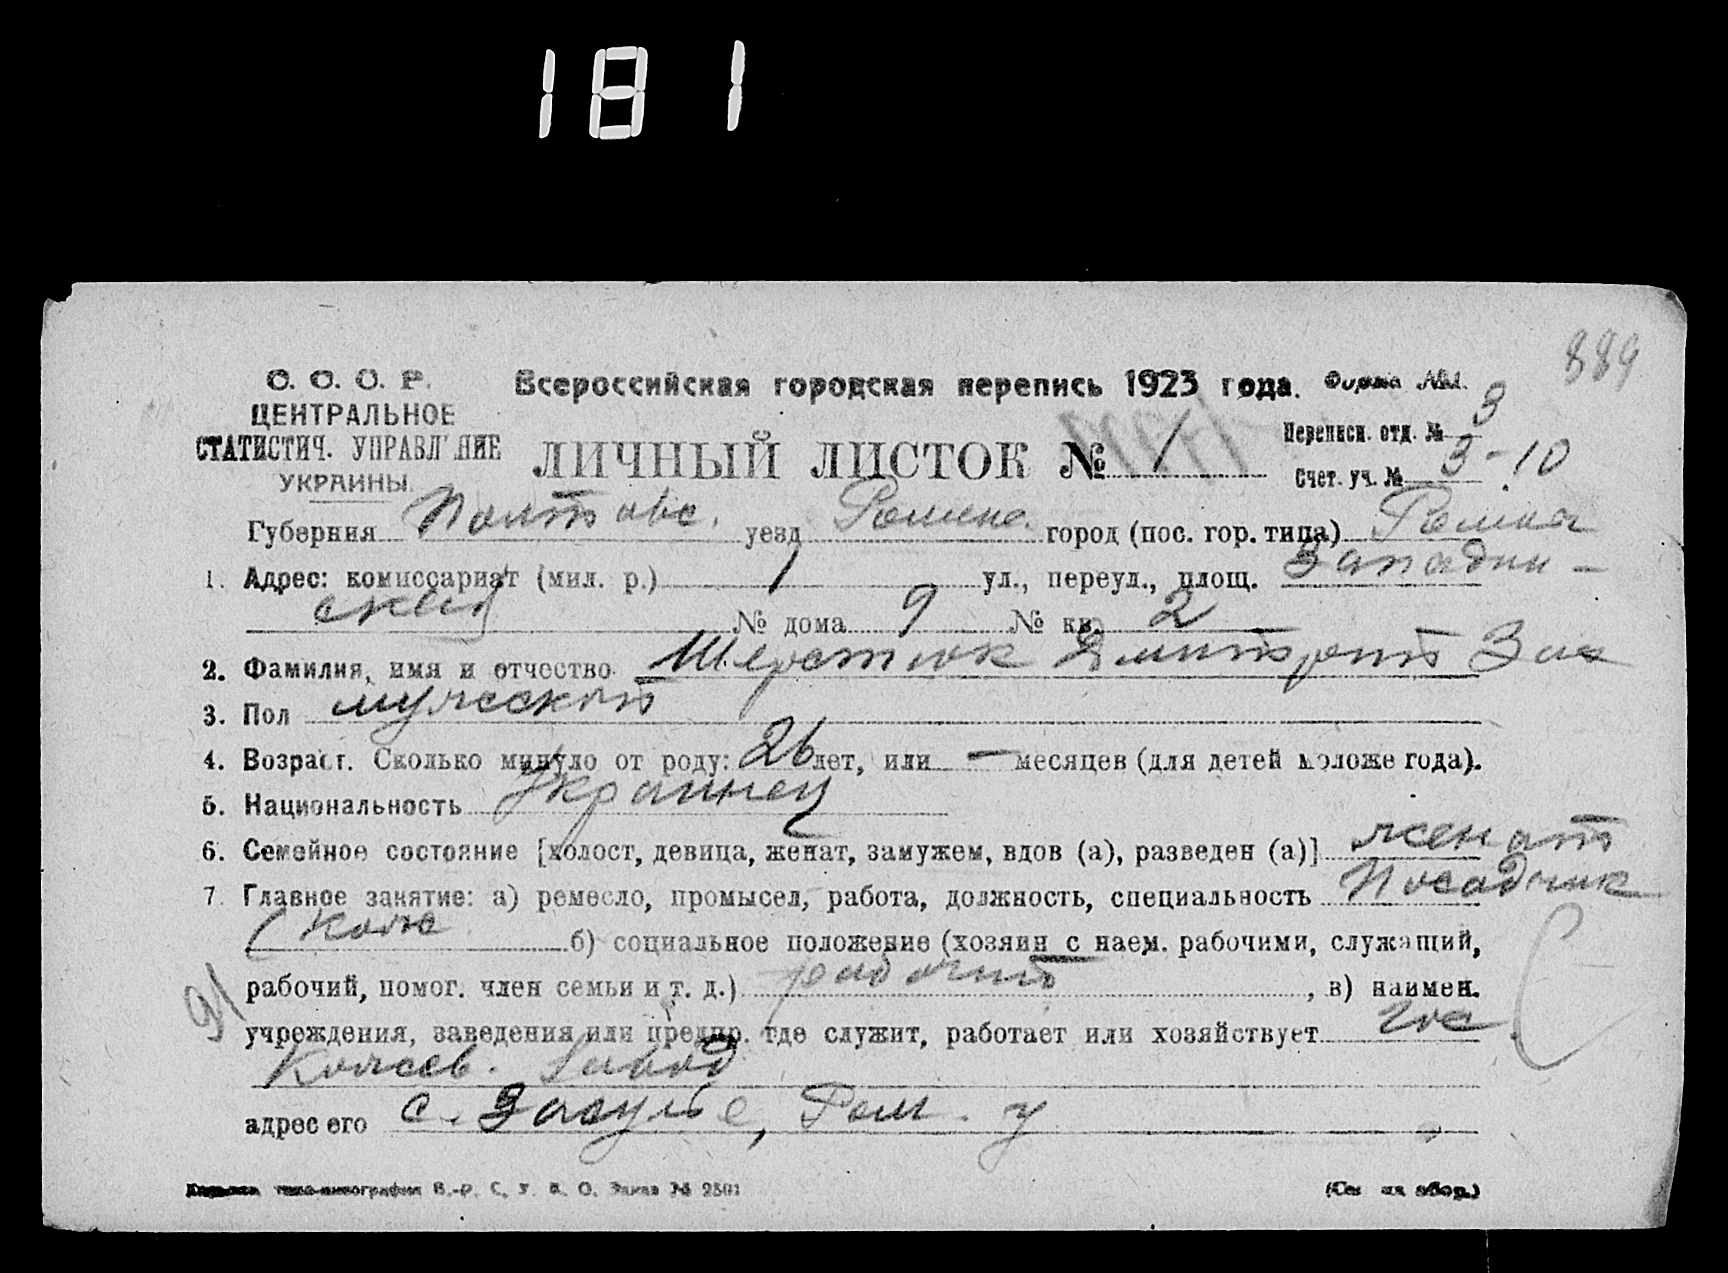 181
889
С. С. С. Р. Всероссийская городская перепись 1923 года. Форма №1.
ЦЕНТРАЛЬНОЕ
СТАТИСТИЧ. УПРАВЛ'НИЕ
УКРАИНЫ.
ЛИЧНЫЙ ЛИСТОК № 1
Переписн. отд. № 3
Счет. уч. № 3-10
Губерния Полтавс. уезд Роменс. город (пос. гор. типа) Ромны
1. Адрес: комиссариат (мил. р.) 1 ул., переул., площ. Западин-
ский № дома 9 № кв. 2
2. Фамилия, имя и отчество Шерстюк Дмитрий
3. Пол мужской
4. Возраст. Сколько минуло от роду: 26 лет, или — месяцев (для детей моложе года).
5. Национальность Украинец
6. Семейное состояние [холост, девица, женат, замужем, вдов (а), разведен (а)] женат
7. Главное занятие: а) ремесло, промысел, работа, должность, специальность Посадчик
(кож б) социальное положение (хозяин с наем. рабочими, служащий,
91
рабочий, помог. член семьи и т. д.) рабочий, в) наимен.
учреждения, заведения или предпр. где служит, работает или хозяйствует Гос
Кожев. Завод
адрес его с. Засулье, Ром. у
типо-литография В.-Р. С. У. В. О. Заказ № 2501